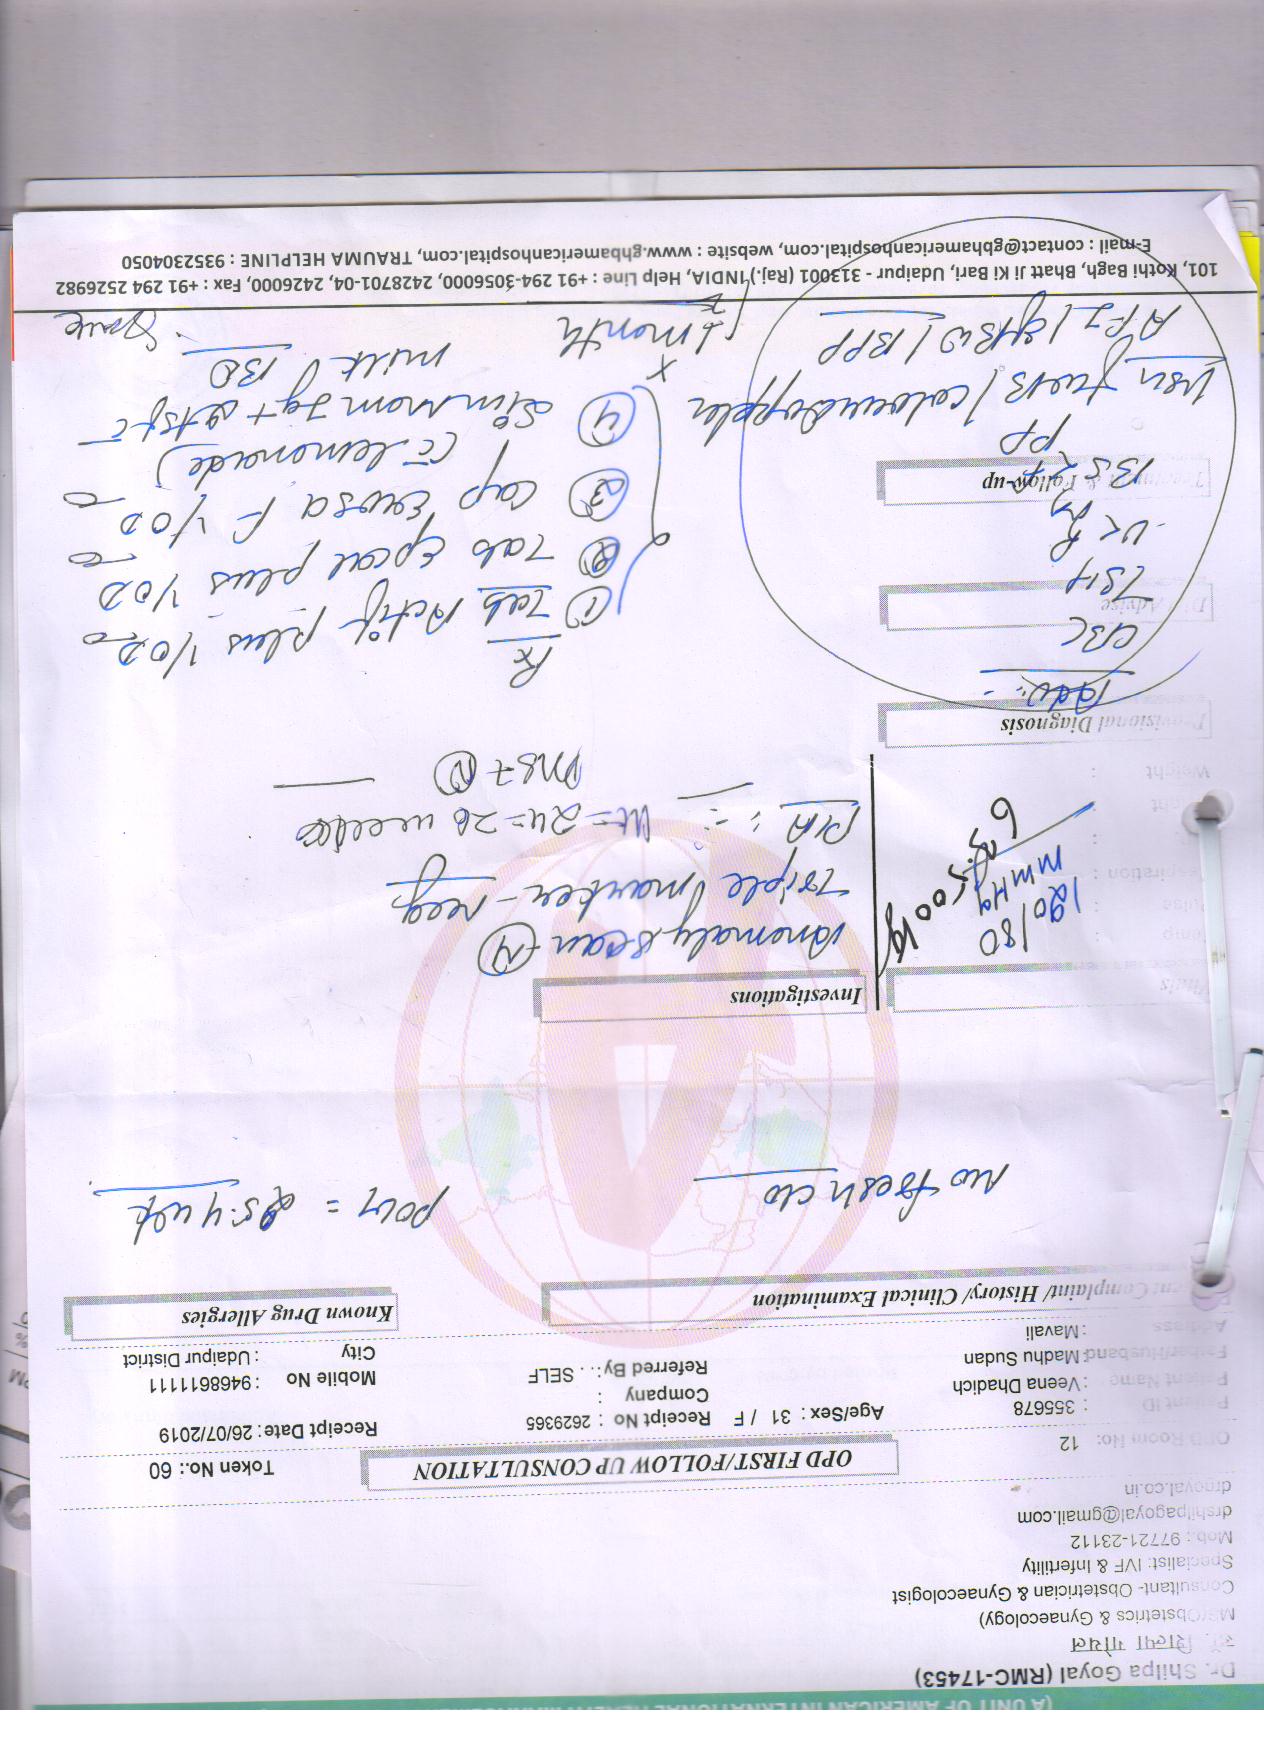 (A UNIT OF AMERICAN INTERNATIONAL HEALTH
Dr. Shilpa Goyal (RMC-17453)
डॉ. शिल्पा गोयल
MS(Obstetrics & Gynaecology)
Consultant- Obstetrician & Gynaecologist
Specialist: IVF & Infertility
Mob.: 97721-23112
drshilpagoyal@gmail.com
OPD Room No: 12
OPD FIRST/FOLLOW UP CONSULTATION
Token No.: 60
Patient ID : 355678
Age/Sex : 31 / F
Receipt No : 2629365
Receipt Date : 26/07/2019
Patient Name : Veena Dhadich
Company :
Mobile No : 9468611111
Father/Husband : Madhu Sudan
Referred By : SELF
City : Udaipur District
Address : Mavali
Complaint/ History/ Clinical Examination
Known Drug Allergies
No fresh c/o
POG = 25.4 wk
Vitals
Investigations
Temp :
Pulse :
Respiration :
Weight :
120/80
mmHg
Anomaly scan - (N)
Triple marker - neg
P/A :- Ut = 24-26 weeks
Provisional Diagnosis
Adv :-
CBC
TSH
Treatment & Follow-up
PP
USG / colour doppler
AFI / EFBW / BPP
Rx
① Tab Actif plus 1/OD
② Tab Epcal plus 1/OD
③ Cap Exosa F 1/OD
(c̄ lemonade)
milk BD
x 1 month
101, Kothi Bagh, Bhatt Ji Ki Bari, Udaipur - 313001 (Raj.) INDIA, Help Line : +91 294-3056000, 2428701-04, 2426000, Fax : +91 294 2526982
E-mail : contact@gbhamericanhospital.com, website : www.gbhamericanhospital.com, TRAUMA HELPLINE : 9352304050